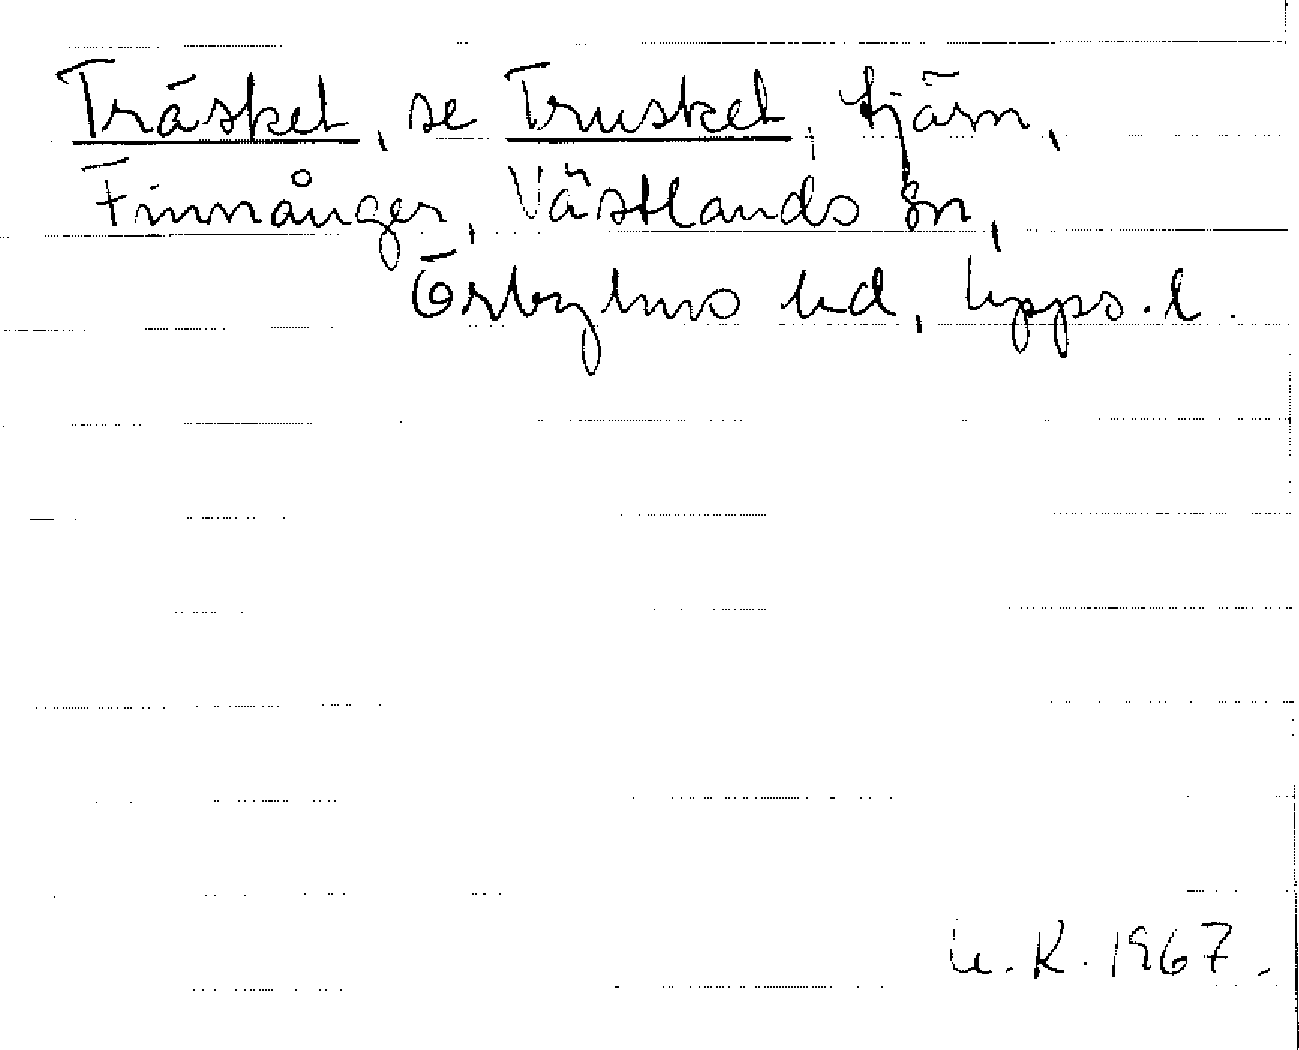 Träsket, se Trusket, tjärn,
Finnånger, Västlands sn,
Örbyhus hd, Upps. l.
U. K. 1967.